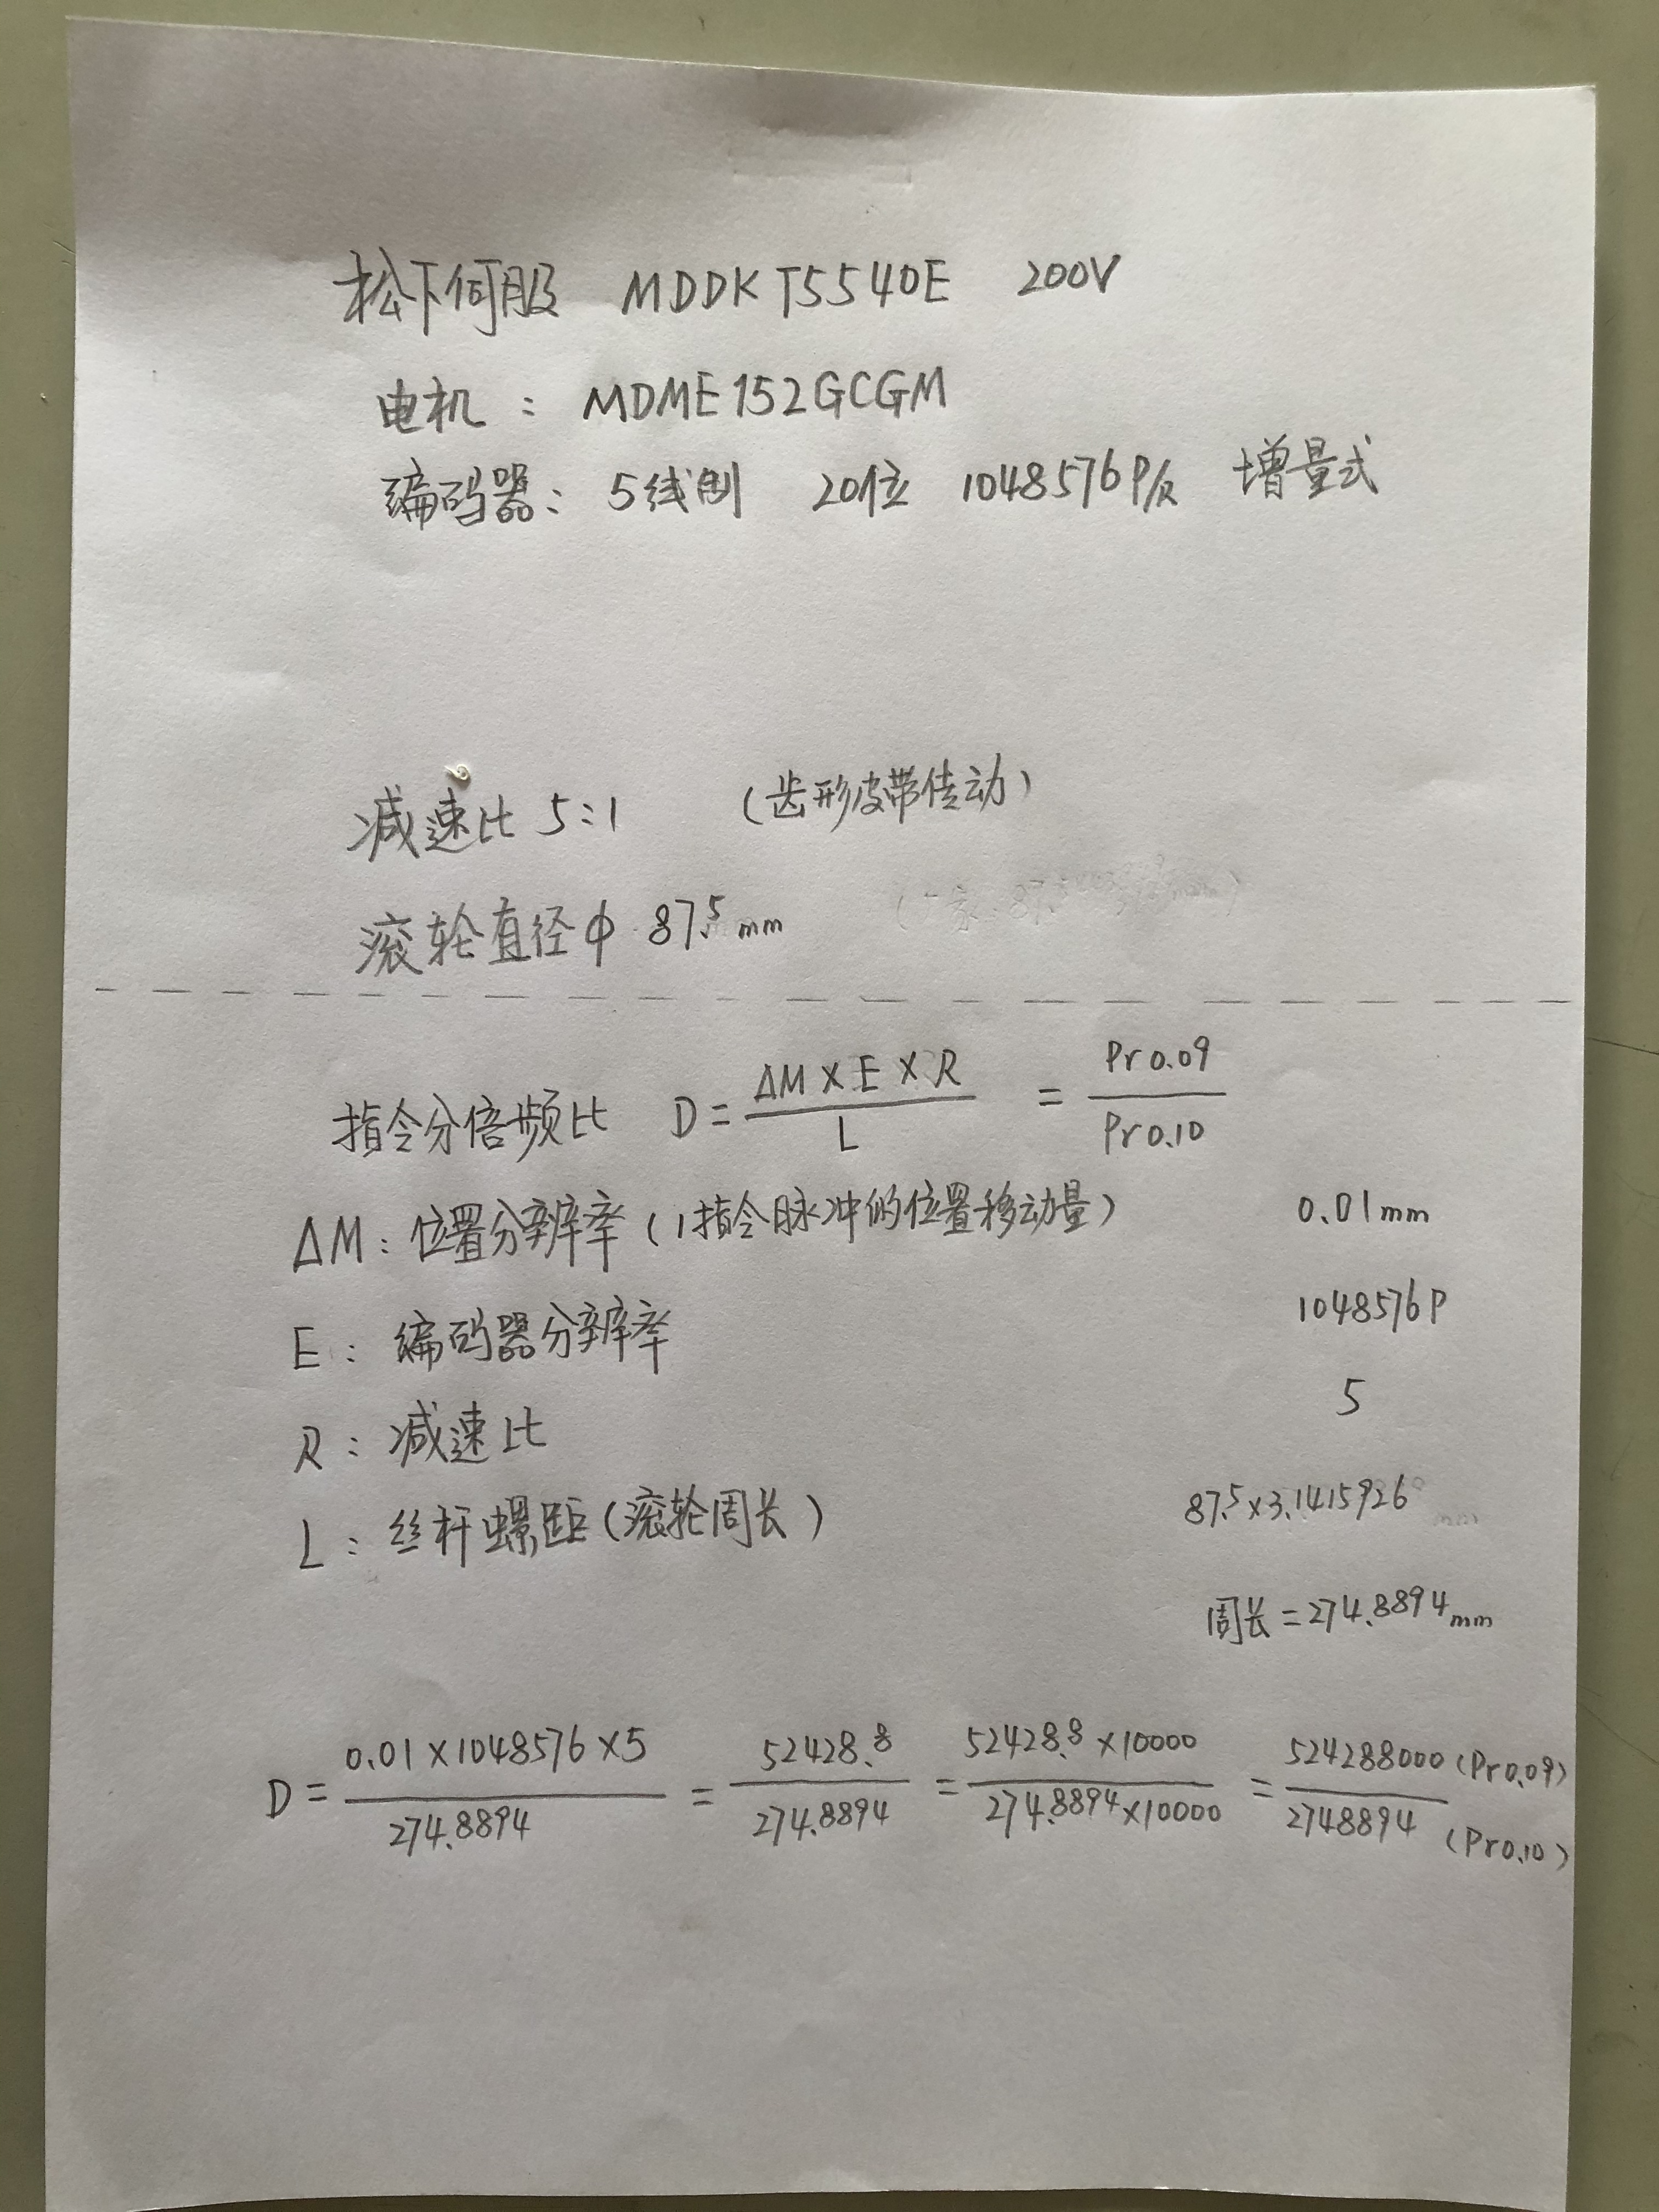 松下伺服 MDDKT5540E 200V
电机: MDME152GCGM
编码器: 5线制 20位 1048576P/r 增量式
减速比 5:1 (齿形皮带传动)
滚轮直径φ 87.5mm
指令分倍频比 D = ΔM × E × R / L = Pr0.09 / Pr0.10
ΔM: 位置分辨率(1指令脉冲的位置移动量) 0.01mm
E: 编码器分辨率 1048576P
R: 减速比 5
L: 丝杆螺距(滚轮周长) 87.5×3.1415926
周长=274.8894mm
D = 0.01×1048576×5 / 274.8894 = 52428.8 / 274.8894 = 52428.8×10000 / 274.8894×10000 = 524288000(Pr0.09) / 2748894(Pr0.10)